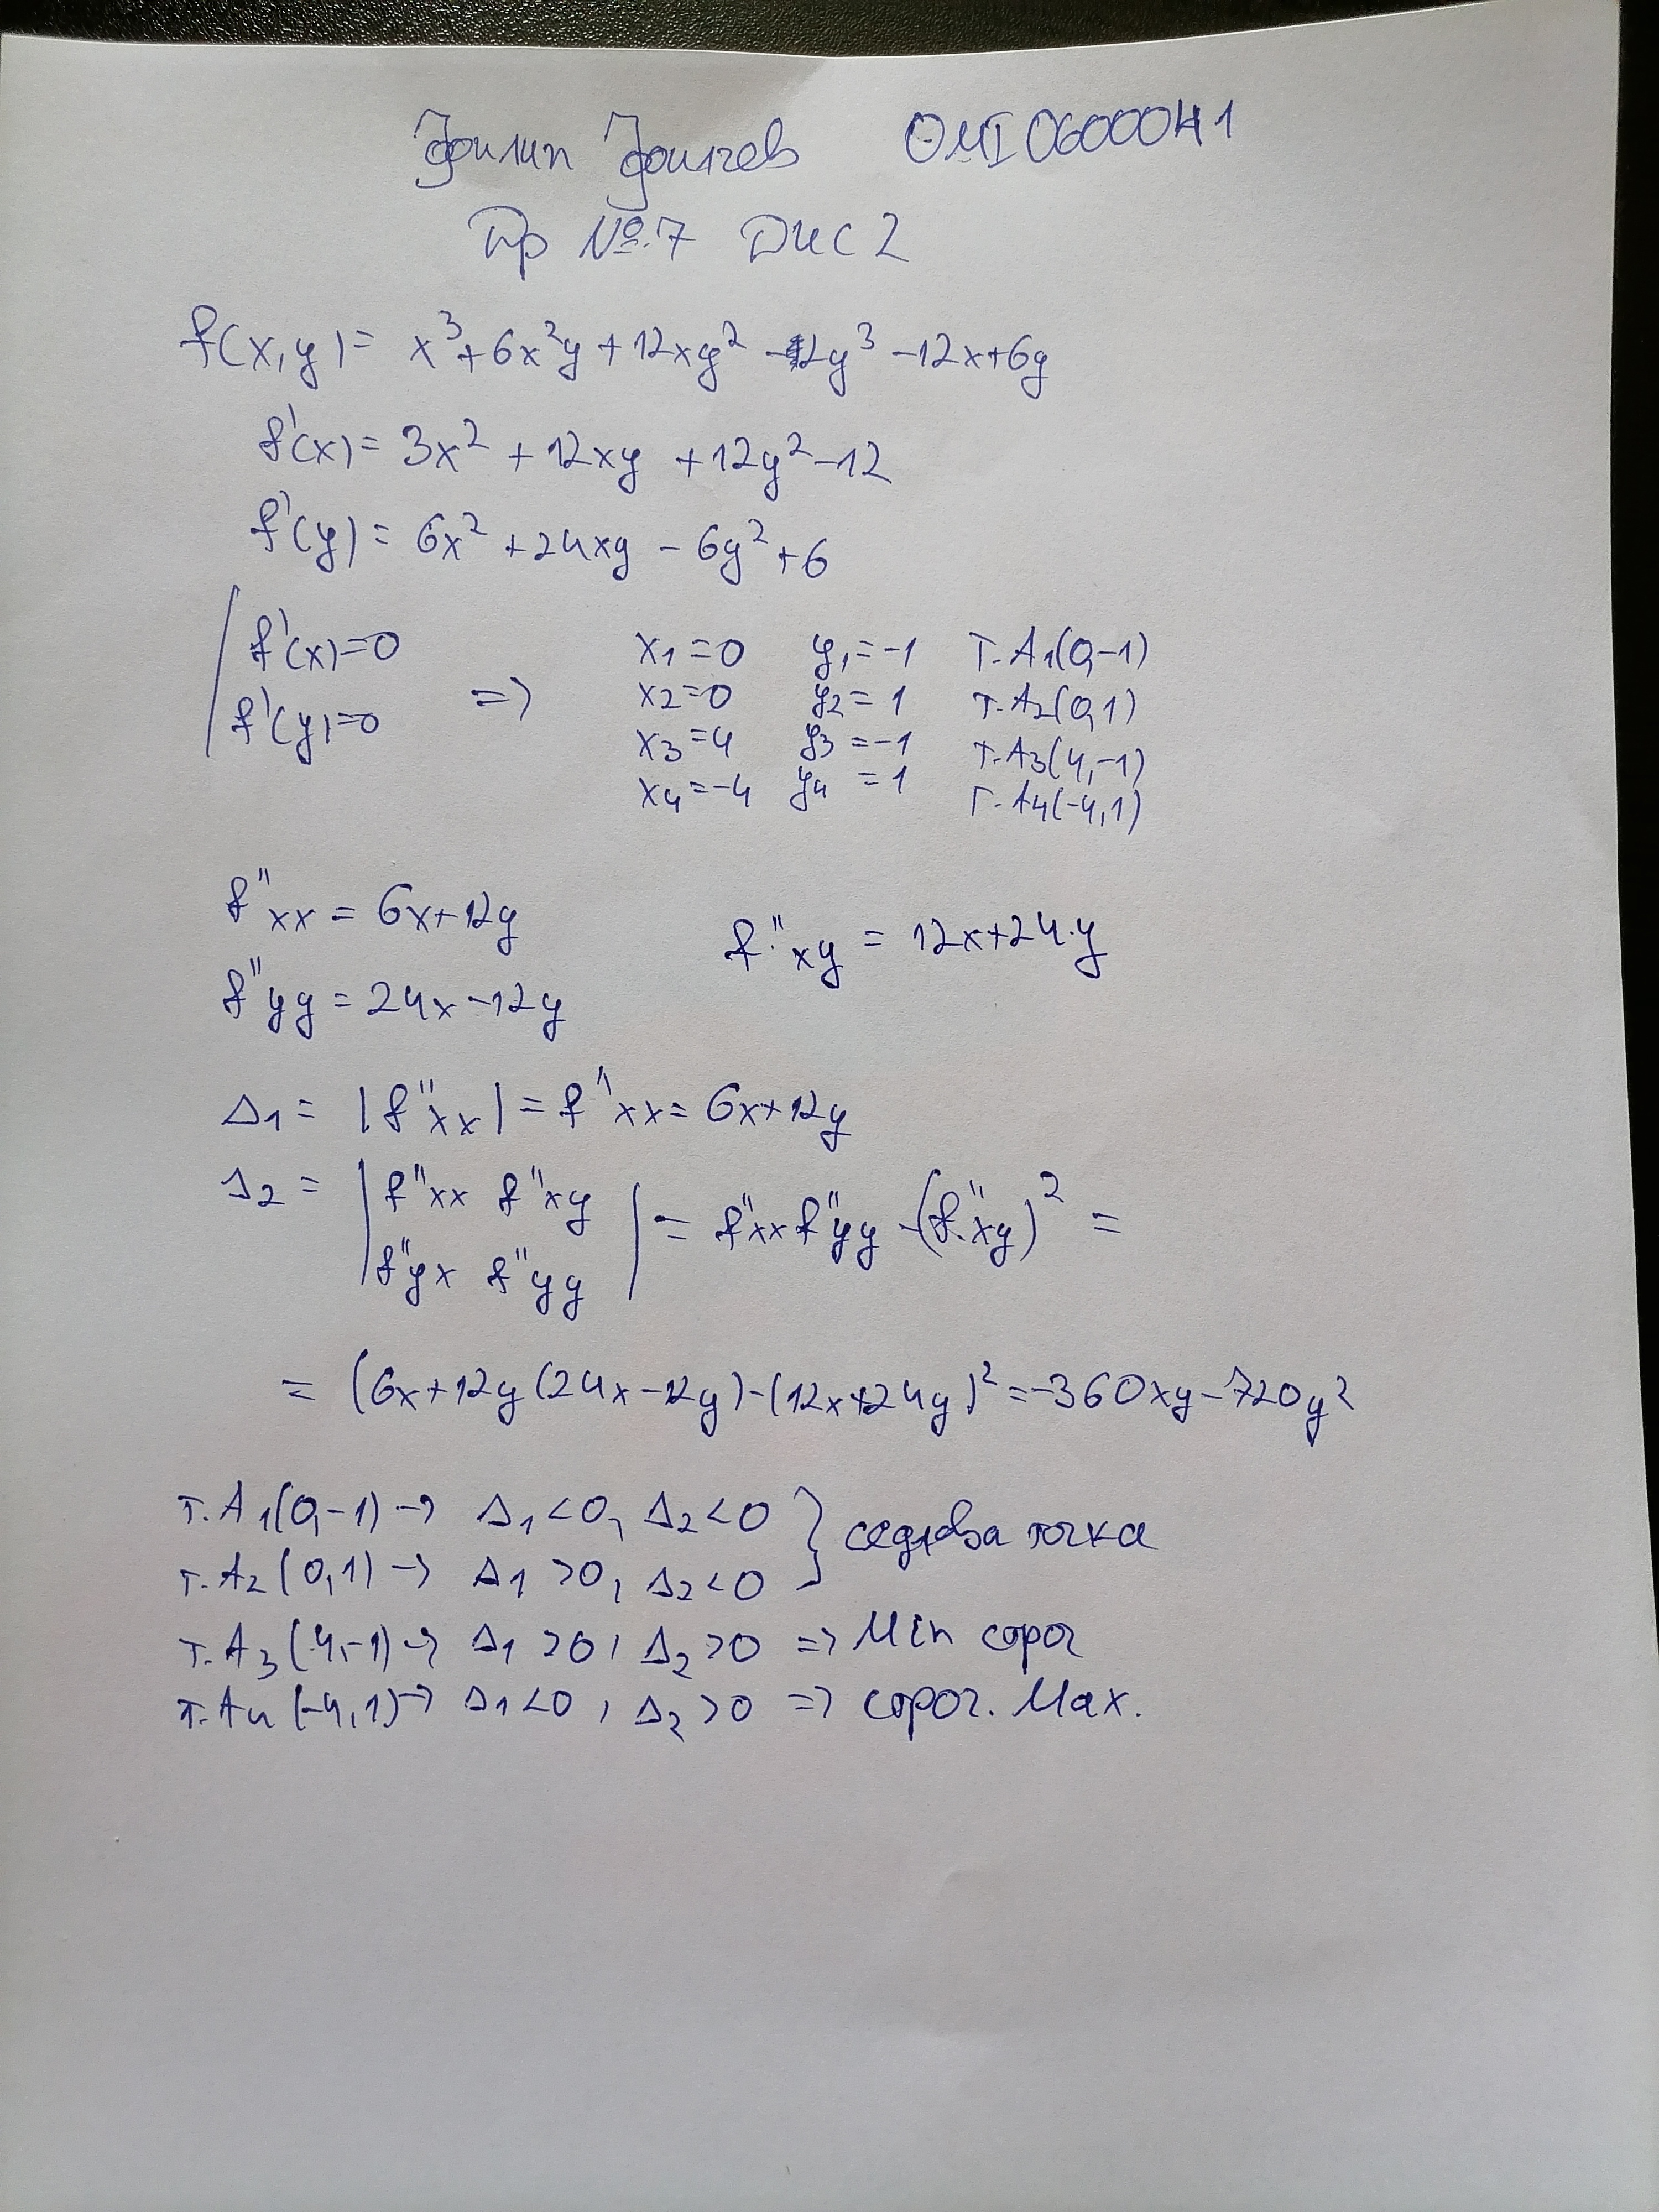 Филип Филчев 0MI0600041
Др №7 ДИС2
f(x,y)= x³+6x²y+12xy²-2y³-12x+6y
f'(x)= 3x²+12xy+12y²-12
f'(y)= 6x²+24xy-6y²+6
f'(x)=0 x1=0 y1=-1 т.A1(0,-1)
=> x2=0 y2=1 т.A2(0,1)
f'(y)=0 x3=4 y3=-1 т.A3(4,-1)
x4=-4 y4=1 т.A4(-4,1)
f''xx=6x+12y f''xy=12x+24.y
f''yy=24x-12y
Δ1=|f''xx|=f''xx=6x+12y
Δ2=|f''xx f''xy
f''yx f''yy|=f''xxf''yy-(f''xy)²=
=(6x+12y(24x-12y)-(12x+24y)²=-360xy-720y²
т.A1(0,-1)→ Δ1<0, Δ2<0 } седлова точка
т.A2(0,1)→ Δ1>0, Δ2<0
т.A3(4,-1)→ Δ1>0, Δ2>0 => Min строг
т.A4(-4,1)→ Δ1<0, Δ2>0 => строг. Max.